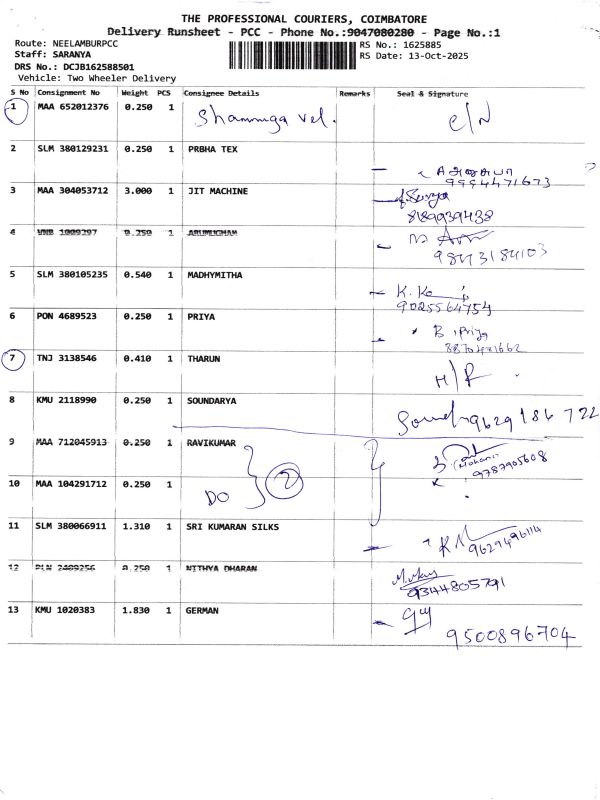 THE PROFESSIONAL COURIERS, COIMBATORE
Delivery Runsheet - PCC - Phone No.:9047080280 - Page No.:1
Route: NEELAMBURPCC
Staff: SARANYA
DRS No.: DCJB162588501
Vehicle: Two Wheeler Delivery
RS No.: 1625885
RS Date: 13-Oct-2025
S No Consignment No Weight PCS Consignee Details Remarks Seal & Signature
1 MAA 652012376 0.250 1 Shanmuga Vel. C/N
2 SLM 380129231 0.250 1 PRBHA TEX
9994471673
3 MAA 304053712 3.000 1 JIT MACHINE Surya
8189939438
4 1009297 0.250 1 ARUMUGHAM
9843184103
5 SLM 380105235 0.540 1 MADHYMITHA
9025564754
6 PON 4689523 0.250 1 PRIYA B. Priya
7 TNJ 3138546 0.410 1 THARUN H/R
8 KMU 2118990 0.250 1 SOUNDARYA 9629186722
9 MAA 712045913 0.250 1 RAVIKUMAR Mohan
9787905608
10 MAA 104291712 0.250 1 DO 2
11 SLM 380066911 1.310 1 SRI KUMARAN SILKS
9629496114
12 PLN 2489256 0.250 1 NITHYA DHARAN
9344805791
13 KMU 1020383 1.830 1 GERMAN
9500896704